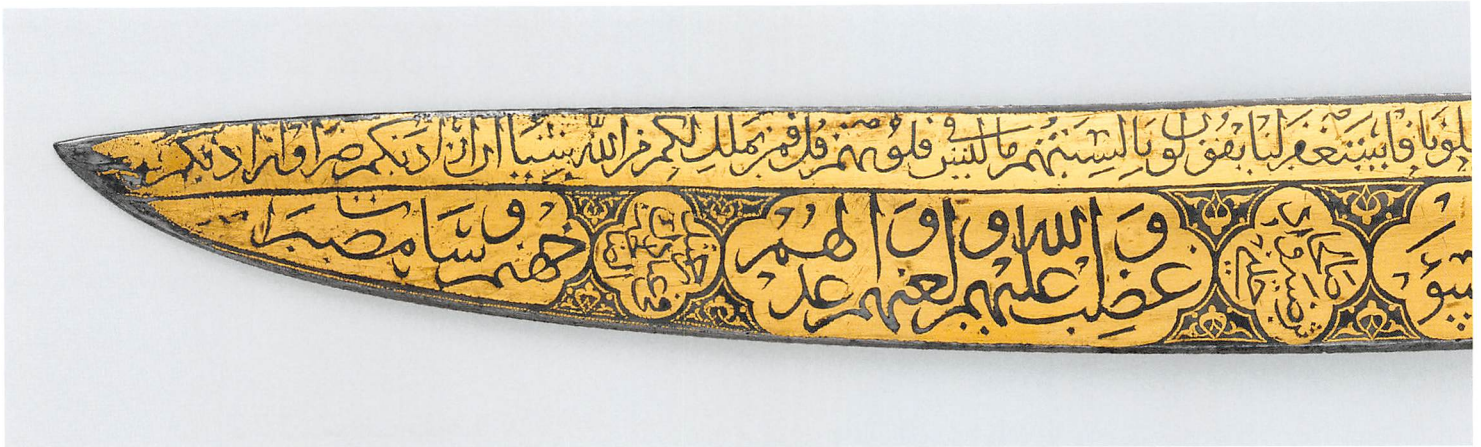 فاستغفر لنا يقولون بالسنتهم ما ليس في قلوبهم قل فمن يملك لكم من الله شيئا ان اراد بكم ضرا او اراد بكم
السوء وغضب الله عليهم ولعنهم واعد لهم جهنم وساءت مصيرا